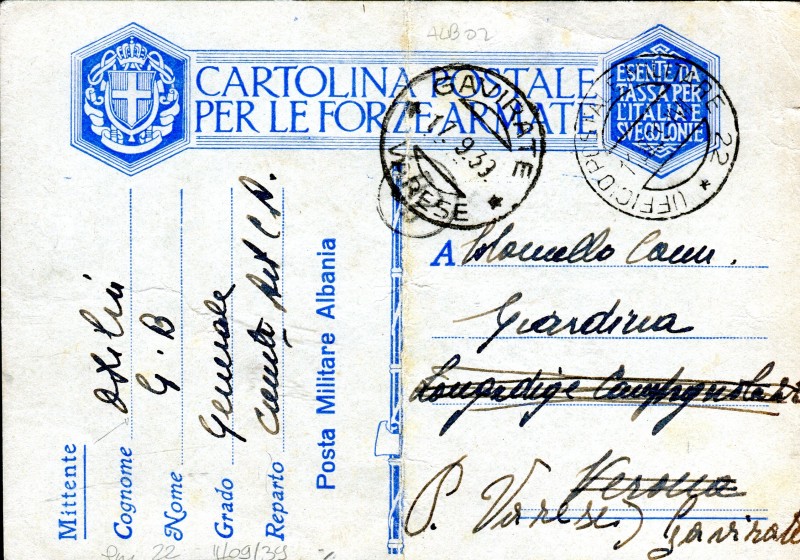 ALB 02
CARTOLINA POSTALE
PER LE FORZE ARMATE
ESENTE DA
TASSA PER
L'ITALIA E
SVE COLONIE
GAVIRATE
17.9.39
* VARESE *
22 * UFFICIO POSTALE
A Colonnello Comm.
Giardina
Lungadige Campagnola
Verona
P. Varese) Gavirate
Mittente
Cognome
Nome G. B
Grado Generale
Reparto
Posta Militare Albania
PM 22 14 09/39